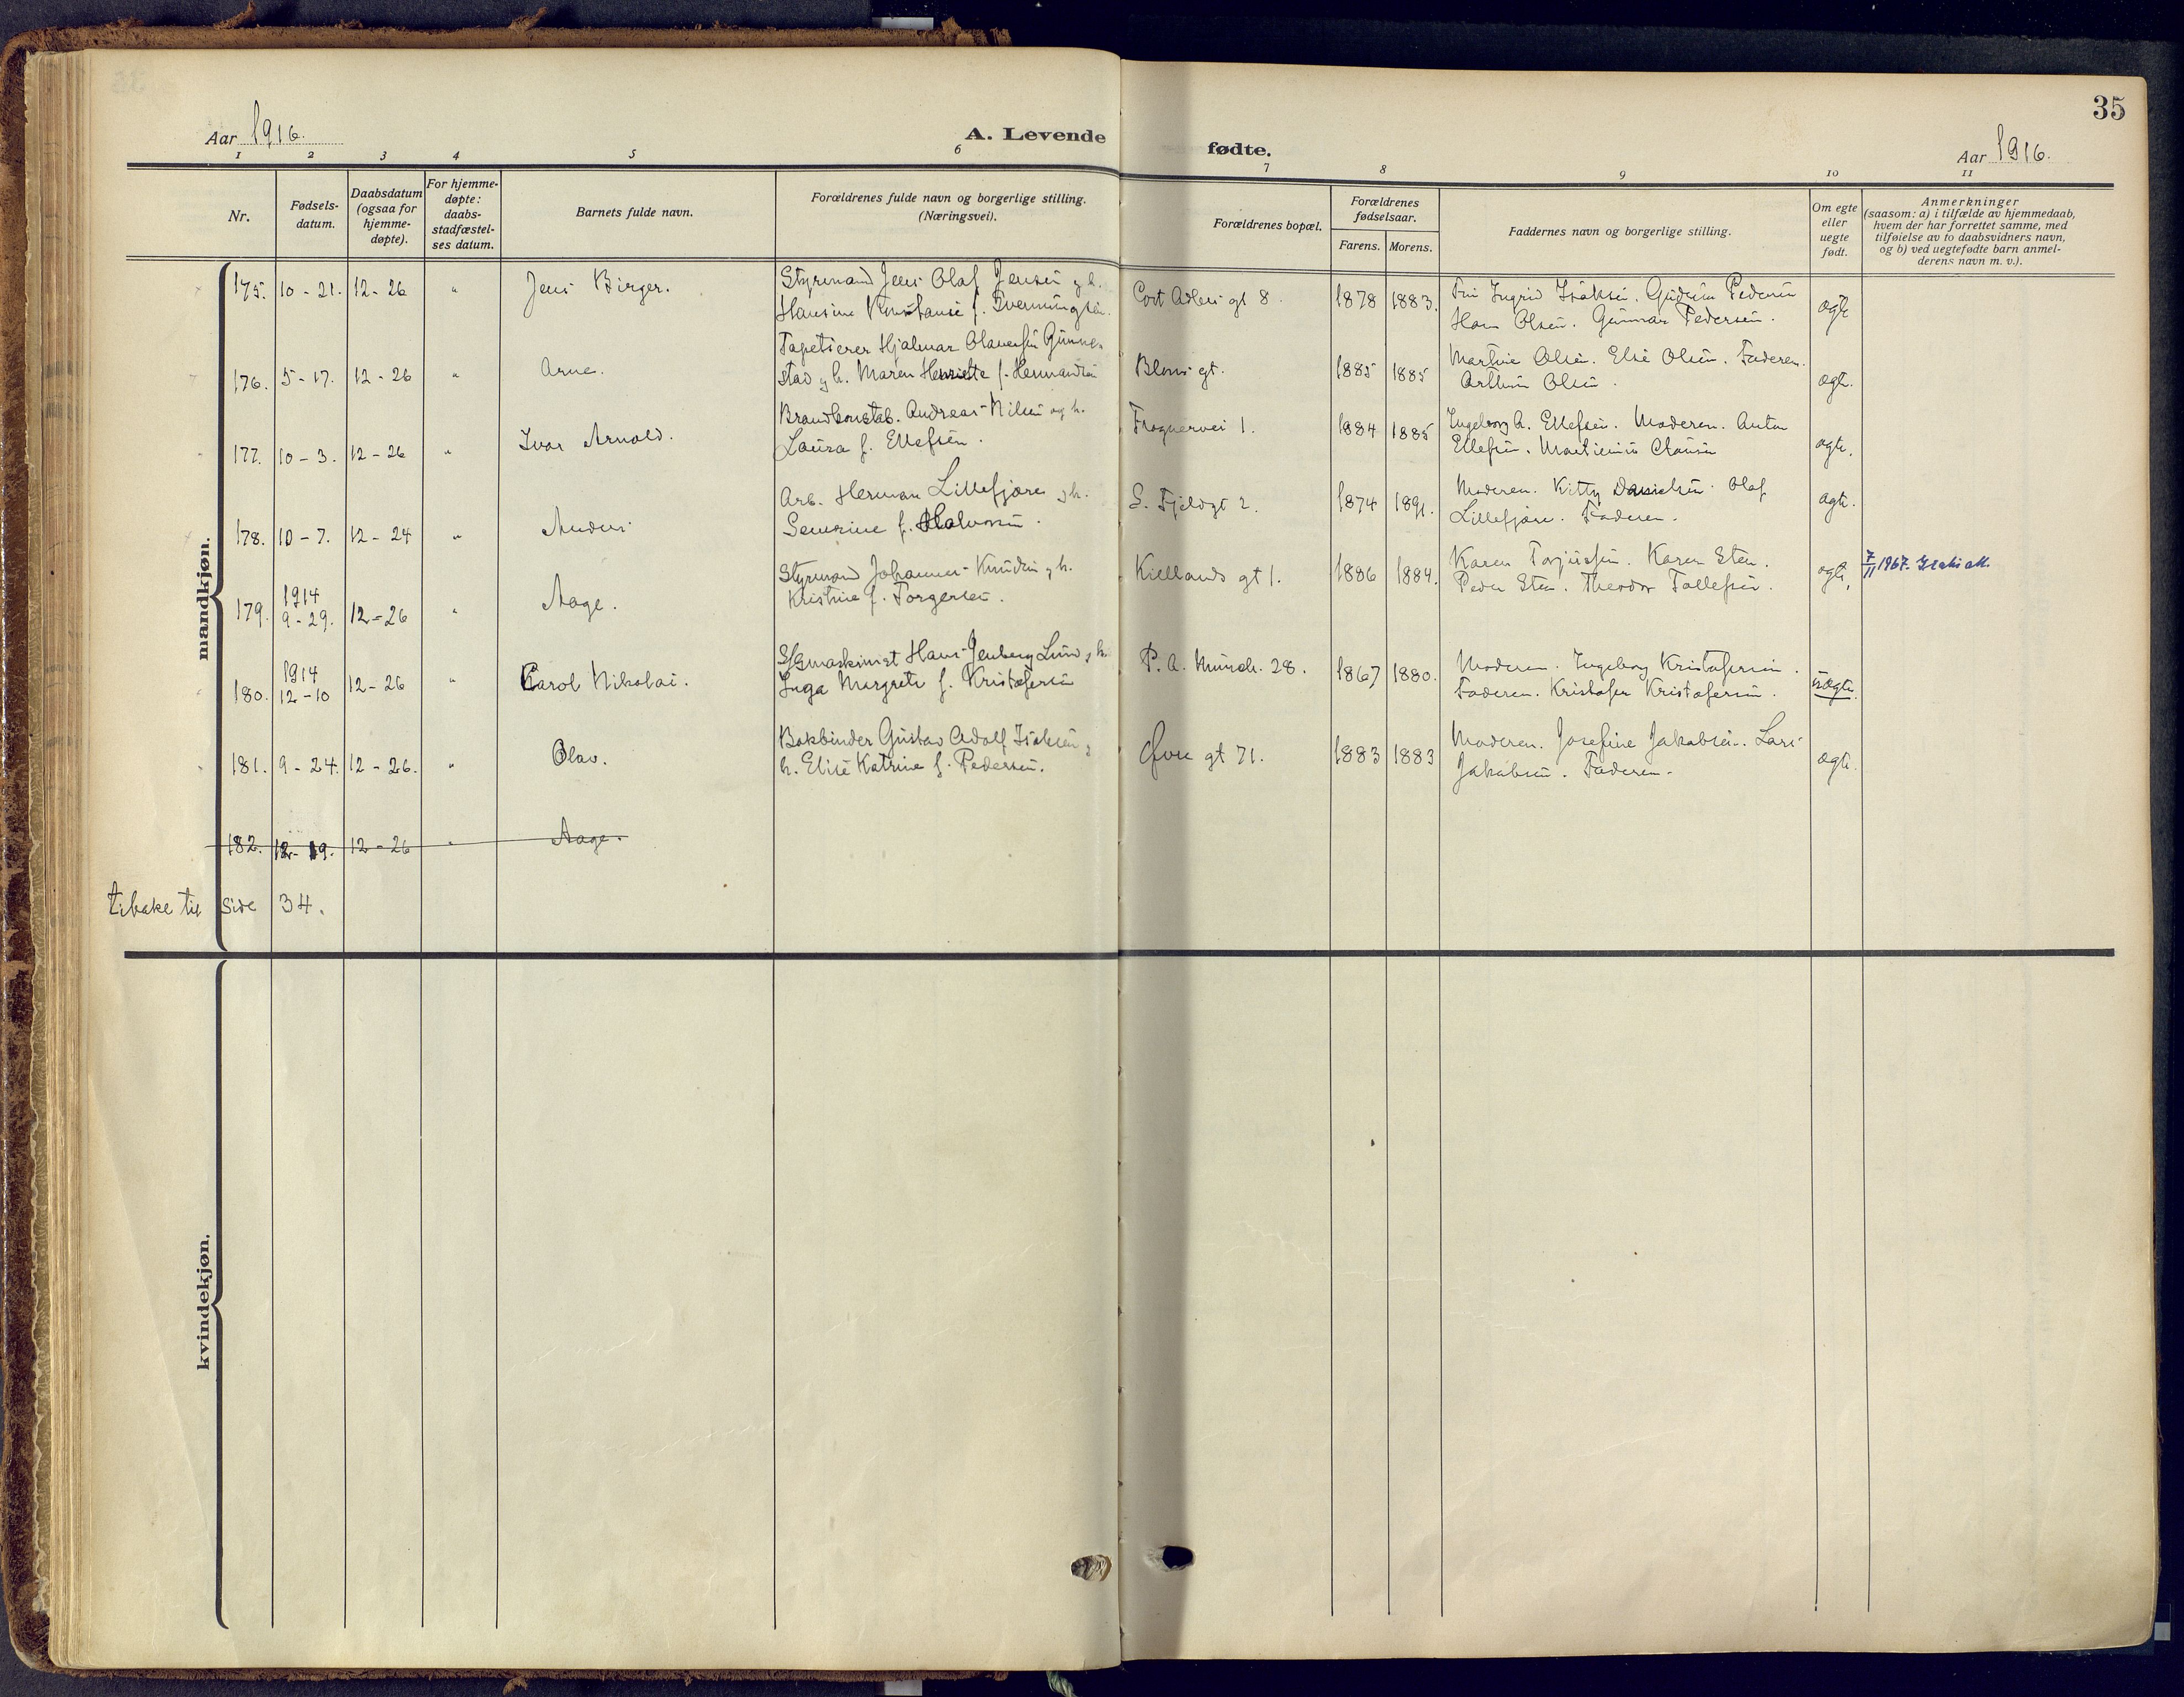 35
Aar 1916.
A. Levende
fødte.
Aar 1916.
1 2 3 4 5 6 7 8 9 10 11
Nr.
Fødsels-
datum.
Daabsdatum
(ogsaa for
hjemme-
døpte).
For hjemme-
døpte:
daabs-
stadfæstel-
ses datum.
Barnets fulde navn.
Forældrenes fulde navn og borgerlige stilling.
(Næringsvei).
Forældrenes bopæl.
Forældrenes
fødselsaar.
Farens. Morens.
Faddernes navn og borgerlige stilling.
Om egte
eller
uegte
født.
Anmerkninger
(saasom: a) i tilfælde av hjemmedaab,
hvem der har forrettet samme, med
tilføielse av to daabsvidners navn,
og b) ved uegtefødte barn anmel-
derens navn m. v.).
mandkjøn.
175. 10 - 21. 12 - 26 " Jens Birger.
Styrmand Jens Olaf Jensen og h.
Hansine Konstanse f.
Cort Adlers gt 8. 1878 1883.
Fru Ingrid Isaksen. Gudrun Pedersen
Hans Olsen. Gunnar Pedersen.
ægte
176. 5 - 17. 12 - 26 " Arne.
Tapetserer Hjalmar Olaussen Gunne-
stad og h. Maren Henriette f. Hermandsen
Bloms gt. 1885 1885
Martine Olsen. Else Olsen. Faderen.
Arthur Olsen.
ægte.
177. 10 - 3. 12 - 26 " Ivar Arnold.
Brandkonstab. Andreas Nilsen og h.
Laura f. Ellefsen.
Frognervei 1. 1884 1885
Ingeborg h. Ellefsen. Moderen. Anton
Ellefsen. Martinius Clausen
ægte.
178. 10 - 7. 12 - 24 " Anders
Arb. Herman Lillefjære og h.
Semerine f. Halvorsen.
S. Fjeldgt 2. 1874 1891.
Moderen. Kitty Danielsen. Olaf
Lillefjære. Faderen.
ægte.
179. 1914
9 - 29. 12 - 26 " Aage.
Styrmand Johannes Knudsen og h.
Kristine f. Torgersen.
Kiellands gt 1. 1886 1884.
Karen Torjussen. Karen Sten.
Peder Sten. Theodor Tollefsen.
ægte.
7/11 1967.
180. 1914
12 - 10 12 - 26 " Carol Nikolai.
S/Smaskinist Hans Jenberg Lund og h.
Inga Margrete f. Kristofersen
P. A. Munch. 28. 1867 1880.
Moderen. Ingeborg Kristofersen.
Faderen. Kristofer Kristofersen.
uægte.
181. 9 - 24. 12 - 26. " Olav.
Bokbinder Gustav Adolf Isaksen og
h. Elise Katrine f. Pedersen.
Øvre gt 71. 1883 1883
Moderen. Josefine Jakobsen. Lars
Jakobsen. Faderen.
ægte.
182. 12 - 19. 12 - 26 " Aage.
tilbake til side 34.
kvindekjøn.